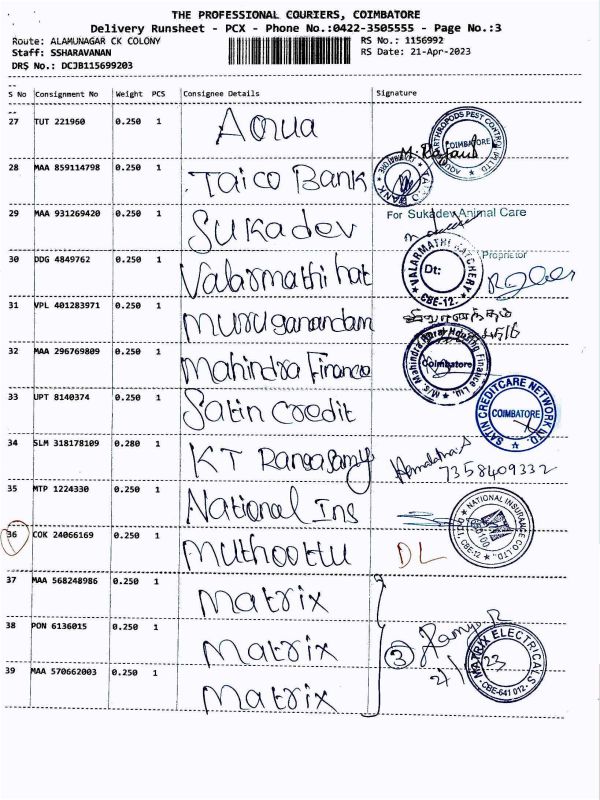 THE PROFESSIONAL COURIERS, COIMBATORE
Delivery Runsheet - PCX - Phone No.:0422-3505555 - Page No.:3
Route: ALAMUNAGAR CK COLONY
RS No.: 1156992
Staff: SSHARAVANAN
RS Date: 21-Apr-2023
DRS No.: DCJB115699203
S No Consignment No Weight PCS Consignee Details Signature
27 TUT 221960 0.250 1 Aqua
COIMBATORE
28 MAA 859114798 0.250 1 Taico Bank
29 MAA 931269420 0.250 1 Sukadev
For Sukadev Animal Care
Proprietor
30 DDG 4849762 0.250 1 Valarmathi hat
VALARMATHI HATCHERY
Dt:
CBE-12.
31 VPL 401283971 0.250 1 Muruganandam
32 MAA 296769809 0.250 1 Mahindra Finance
M/s. Mahindra Rural Housing Finance Ltd.,
Coimbatore
33 UPT 8140374 0.250 1 Satin credit
SATIN CREDITCARE NETWORK LTD.
COIMBATORE
34 SLM 318178109 0.280 1 KT Rangasamy
Hemalatha.S
7358409332
35 MTP 1224330 0.250 1 National Ins
NATIONAL INSURANCE CO.LTD.
CBE-12
36 COK 24066169 0.250 1 Muthoottu DL
37 MAA 568248986 0.250 1 Matrix
38 PON 6136015 0.250 1 Matrix
3
MATRIX ELECTRICALS
CBE-641 012
39 MAA 570662003 0.250 1 Matrix